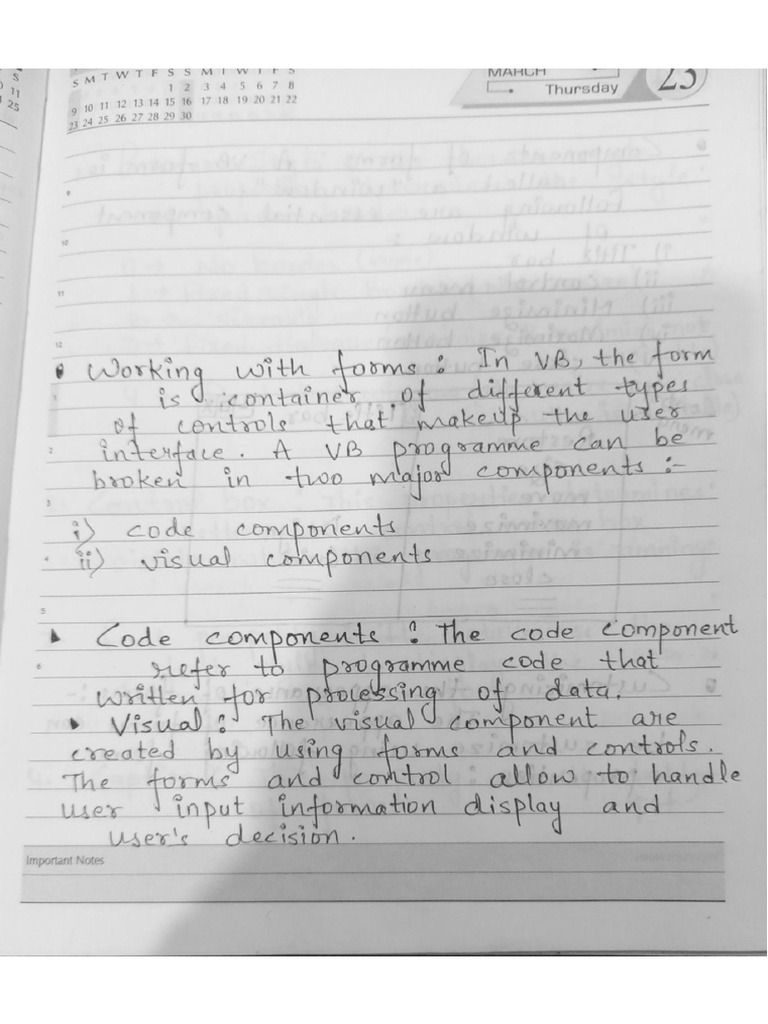 S M T W T F S S M T W T F S
1 2 3 4 5 6 7 8
9 10 11 12 13 14 15 16 17 18 19 20 21 22
23 24 25 26 27 28 29 30
MARCH
Thursday
23
S
11
25
9
10
11
12
• Working with forms : In VB, the form
1 is container of different types
of controls that makeup the user
2 interface. A VB programme can be
broken in two major components :-
3
i) code components
4 ii) visual components
5
Code components : The code component
6 refer to programme code that
written for processing of data.
• Visual : The visual component are
created by using forms and controls.
The forms and control allow to handle
user input information display and
user's decision.
Important Notes